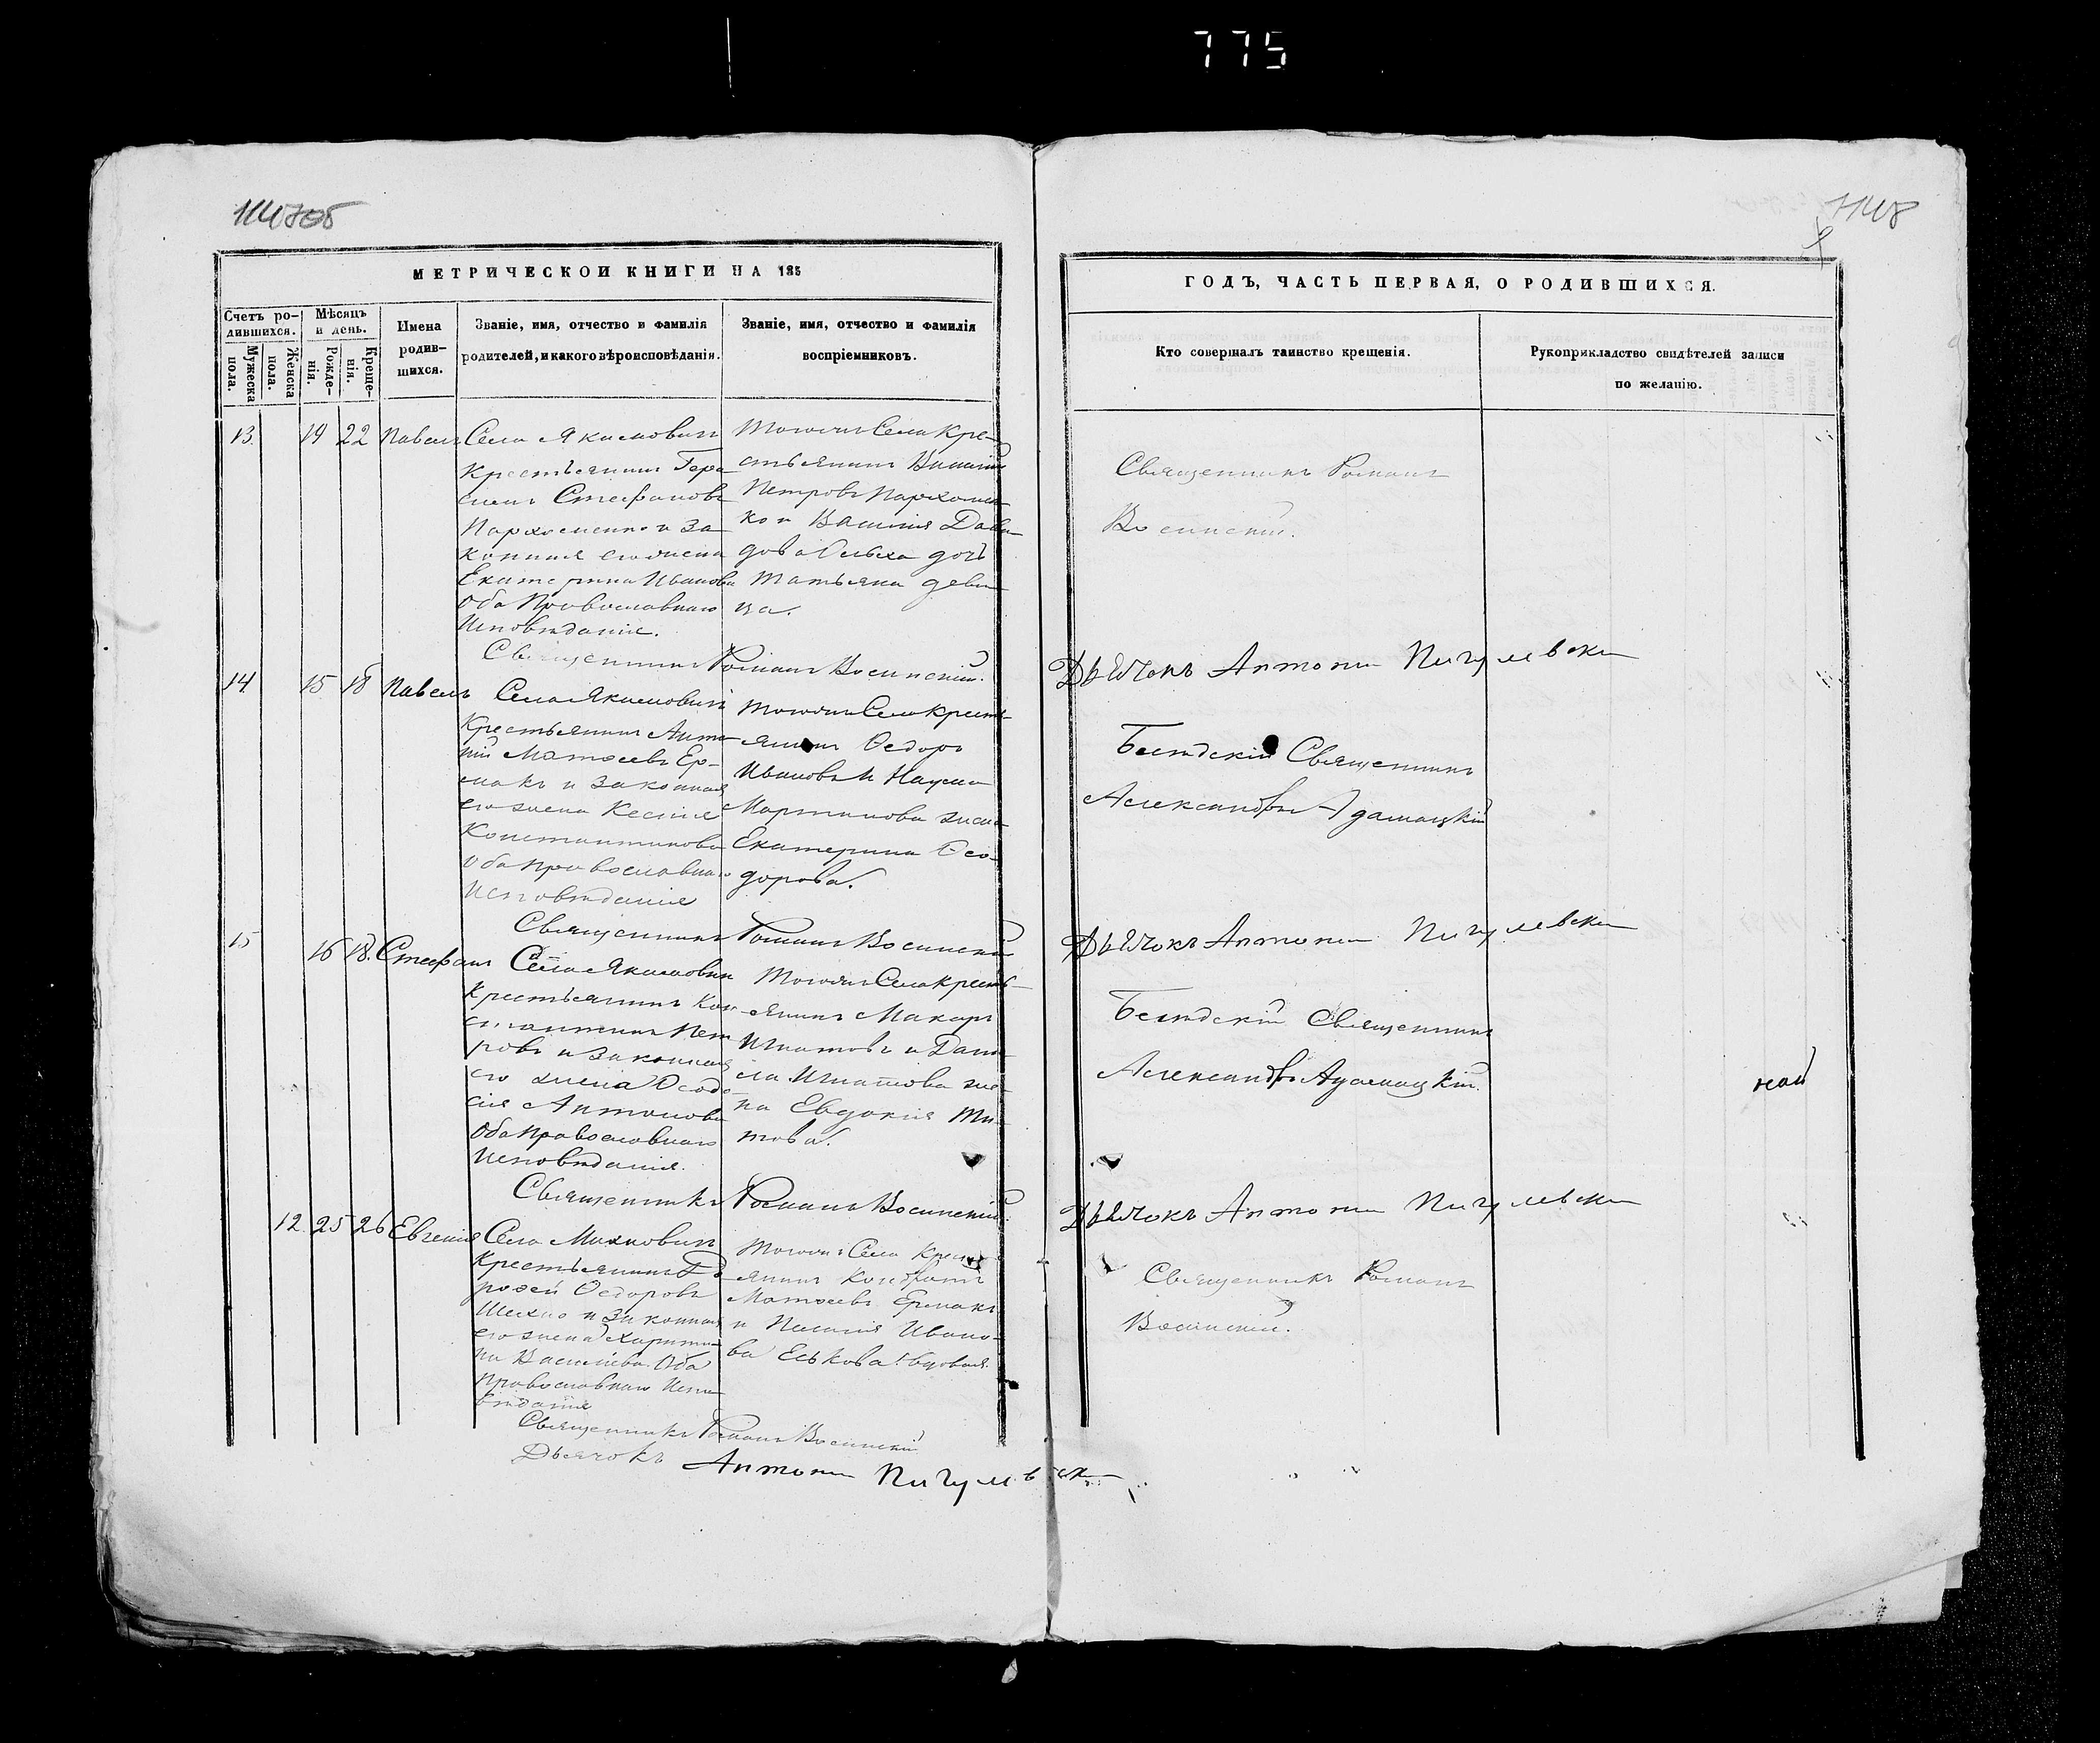 775
1148
МЕТРИЧЕСКОЙ КНИГИ НА 185
ГОДЪ, ЧАСТЬ ПЕРВАЯ, О РОДИВШИХСЯ.
Счетъ родившихся.
Мужеска пола.
Женска пола.
Мѣсяцъ и день.
Рожденія.
Крещенія.
Имена родившихся.
Званіе, имя, отчество и фамилія
родителей, и какого вѣроисповѣданія.
Званіе, имя, отчество и фамилія
воспріемниковъ.
Кто совершалъ таинство крещенія.
Рукоприкладство свидѣтелей записи
по желанію.
13. 19 22 Павелъ
Села Якимовичъ
Крестьянинъ Гера
симъ Стефановъ
Пархоменко и за
конная его жена
Екатерина Иванова
Оба Православнаго
Исповѣданія.
тогожъ Села Кре-
стьянинъ
Петровъ Пархомен
ко и Давы
дова дочь
Татьяна деви
ца.
Священникъ Романъ
Священникъ Романъ
Дьячокъ Антони Пигулевски
14 15 18 Павелъ
Села Якимовичъ
Крестьянинъ Анто
ній Матѳеевъ Ер-
макъ и законная
его жена Ксенія
Константинова
Оба православнаго
Исповѣданія
тогожъ Села Кресть-
янинъ Ѳедоръ
Ивановъ и Наума
Мартинова жена
Екатерина Ѳео-
дорова.
Бѣседскій Священникъ
Александръ
Священникъ Романъ
Дьячокъ Антони Пигулевски
15 16 18. Стефанъ
Села Якимовичъ
Крестьянинъ Кон
стантинъ Пет
ровъ и законная
его жена Ѳеодо
сія Антонова
Оба Православнаго
Исповѣданія.
Тогожъ Села Кресть-
янинъ Макаръ
Игнатовъ и Дани-
ла Игнатова же-
на Евдокія Ти-
това.
Бѣседскій Священникъ
Александръ
Священникъ Романъ
Дьячокъ Антони Пигулевски
12. 25 26 Евгенія
Села Михновичъ
Крестьянинъ До
рофей Ѳедоровъ
и законная
его жена Харити
на Василіева Оба
Православнаго Испо
вѣданія
Тогожъ Села Кресть
янинъ Кондратъ
Матѳеевъ Ермакъ
и Ивано-
ва Еськова вдова.
Священникъ Романъ
Священникъ Романъ
Дьячокъ Антони Пигулевски